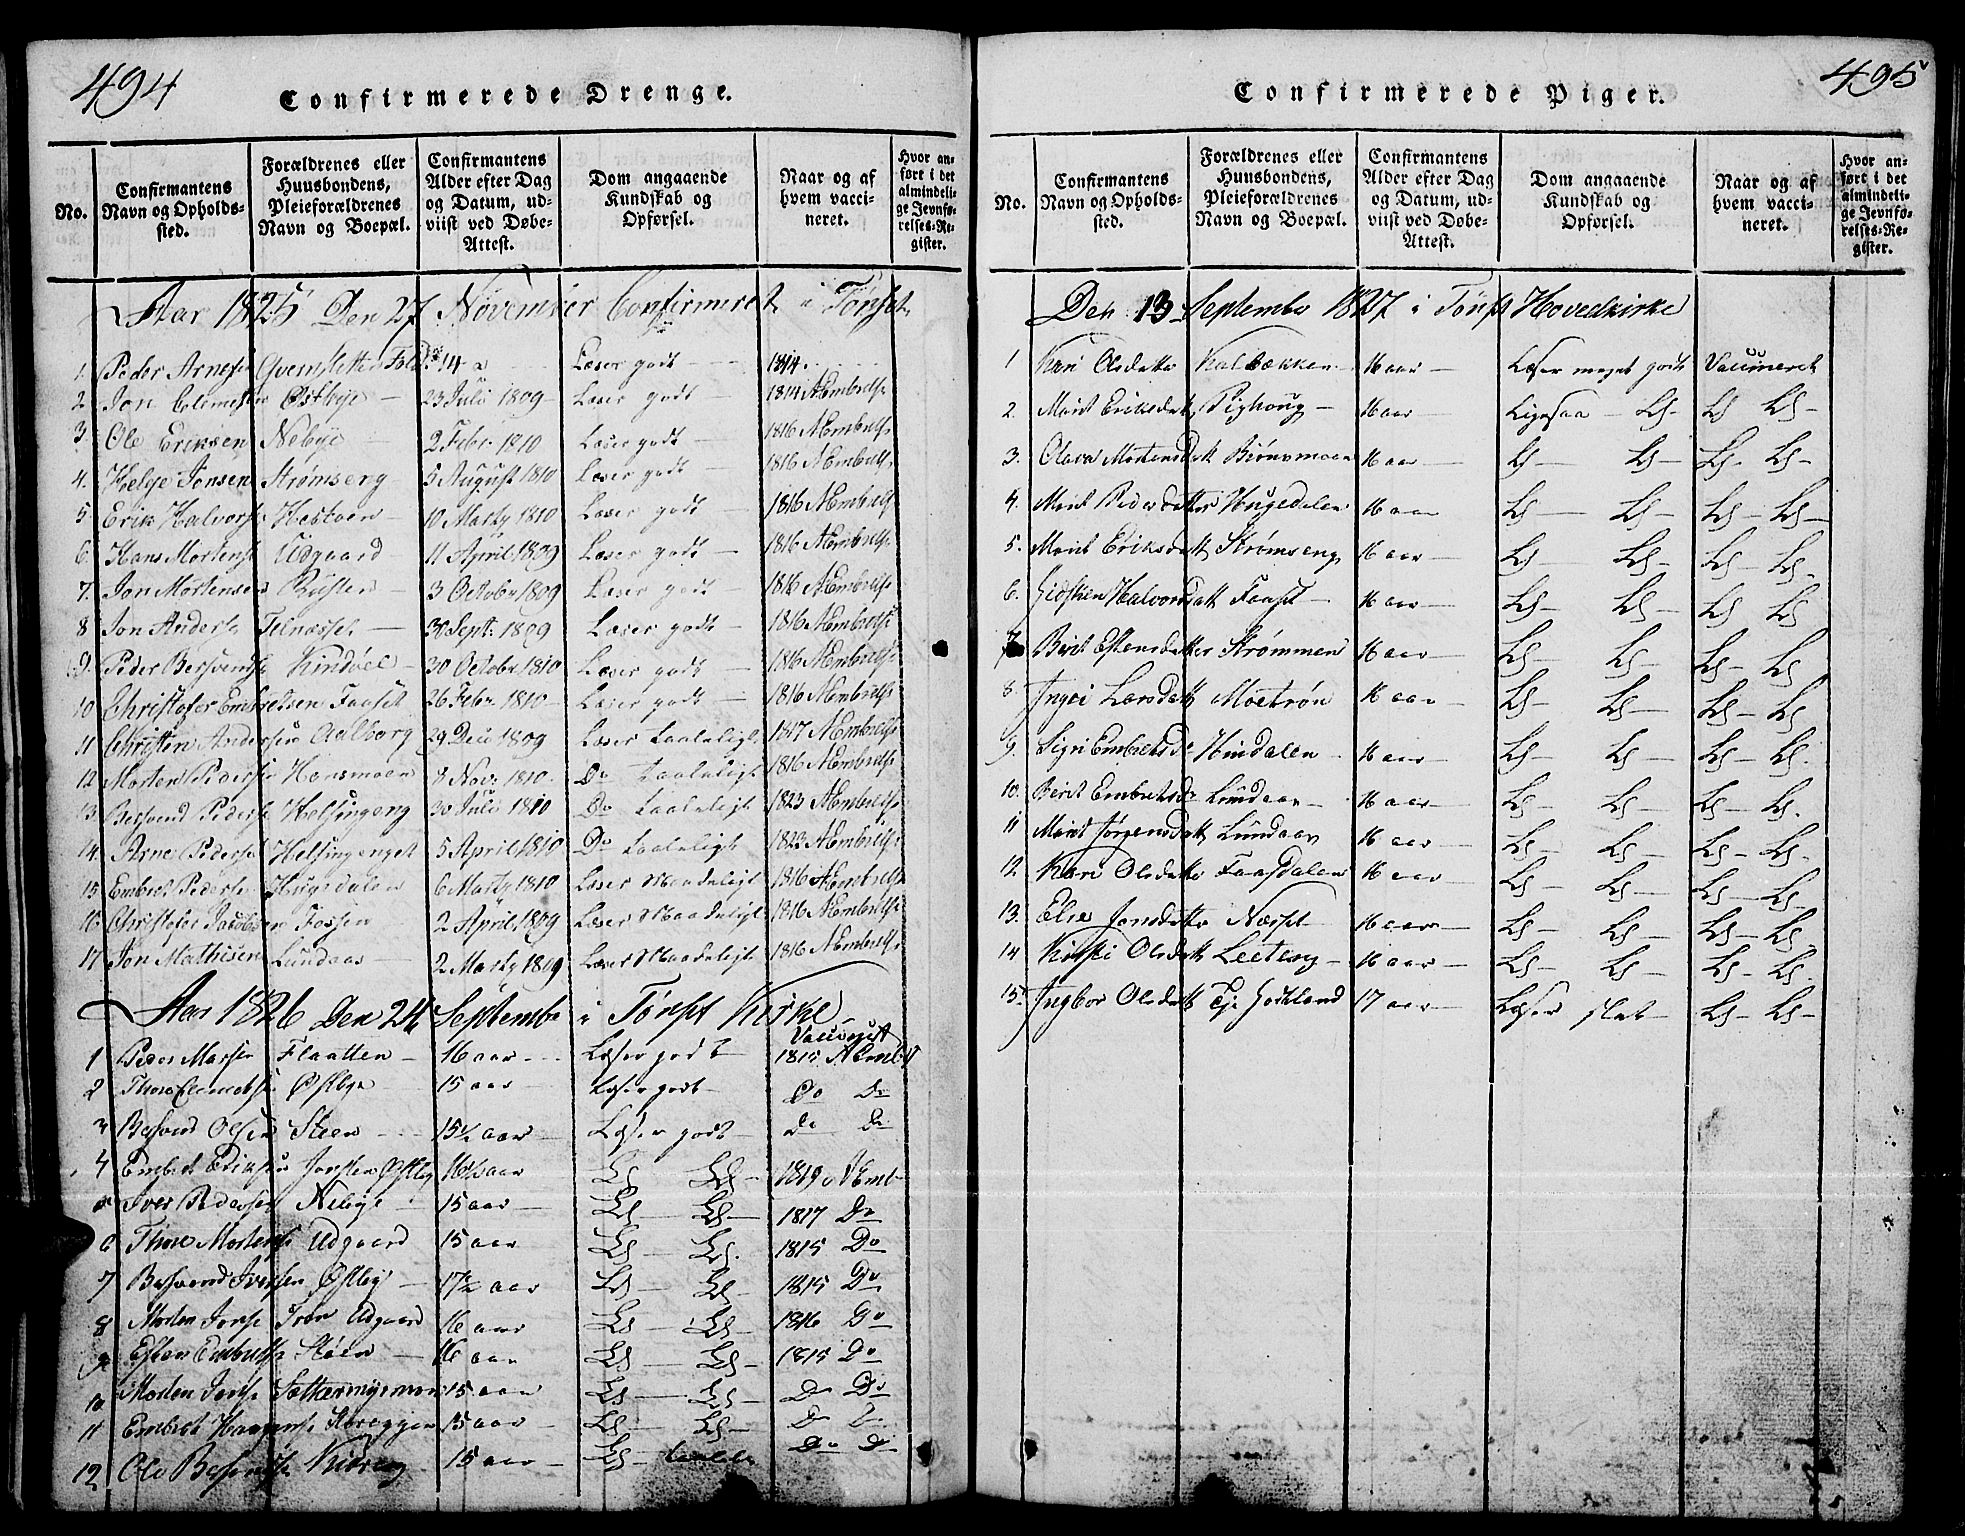 494
Confirmerede Drenge.
No.
Confirmantens Navn og Opholds-sted.
Forældrenes eller Huusbondens, Pleieforældrenes Navn og Boepæl.
Confirmantens Alder efter Dag og Datum, ud-viist ved Døbe-Attest.
Dom angaaende Kundskab og Opførsel.
Naar og af hvem vacci-neret.
Hvor an-ført i det almindeli-ge Jevnfø-relses-Re-gister.
Aar 1825 Den 27 November Confirmeret i Tønset
1. Peder Arnese 14 Læser godt 1814
2. Jon Clemetsen Østbye 23 Juli 1809 Læser godt 1814 AEmbretse
3. Ole Eriksen Nebye 2 Febr. 1810 Læser godt 1816 AEmbretse
4. Helge Jonsen Strømseng 5 August 1810 Læser godt 1816 AEmbretse
5 Erik Halvorse 10 Marty 1810 Læser godt 1816 AEmbretse
6. Hans Mortense Udgaard 11 April 1809 Læser godt 1816 AEmbretse
7. Jon Mortensen Røsten 3 Octobr 1809 Læser godt 1816 AEmbretse
8 Jon Anderse Telnesset 30 Sept. 1809 Læser godt 1816 AEmbretse
9. Peder Bersvendse Kindøel 30 Octobr 1810 Læser godt 1816 AEmbretse
10 Christofer Embretsen Faaset 26 Febr 1810 Læser godt 1816 AEmbretse
11 Christen Andersen Aalborg 29 Dec 1809 Læser taaleligt 1817 AEmbretse
12 Morten Pederse Hansmoen 8 Nov. 1810 Do taaleligt 1816 AEmbretse
13 Bersvend Pederse Helsingeng 30 Juli 1810 Do taaleligt 1823 AEmbretse
14. Arne Pederse Helsingenget 5 April 1810 Do taaleligt 1823 AEmbretse
15 Embret Pederse Hugedalen 6 Marty 1810 Læser Maadeligt 1816 AEmbretse
16 Christofer Jacobsen Fossen 2 April 1809 Læser Maadeligt 1816 AEmbretse
17 Jon Mathisen Lundaas 2 Marty 1809 Læser Maadeligt 1816 AEmbretse
Aar 1826 Den 24 Septembr i Tønset Kirke
1 Peder Flaatten 16 aar Læser godt 1815
2 Østbye 15 aar Læser godt Do Do
3 Bersvend Olsen Steen 15½ aar Læser godt Do Do
4 Embret Eriksen 16½ aar Ds Ds 1819
5 Iver Pederse Nebye 15 aar Ds Ds 1817 Do
6 Thore Mortense Udgaard 15 aar Ds Ds 1815 Do
7 Bersvend Iversen Østby 17½ aar Ds Ds 1815 Do
8 Morten Jonse Tron Udgaard 16 aar Ds Ds 1816 Do
9 Esten Embretse Støen 16 aar Ds Ds 1815 Do
10 Morten Jonse 15 aar Ds Ds Do Do
11 Embret Haagense 15 aar Ds Ds Do Do
12 Ole 15 aar Ds Do Do
495
Confirmerede Piger.
No.
Confirmantens Navn og Opholds-sted.
Forældrenes eller Huusbondens, Pleieforældrenes Navn og Boepæl.
Confirmantens Alder efter Dag og Datum, ud-viist ved Døbe-Attest.
Dom angaaende Kundskab og Opførsel.
Naar og af hvem vacci-neret.
Hvor an-ført i det almindeli-ge Jevnfø-relses-Re-gister.
Den 13 Septembr 1827 i Tønset Hovedkirke
1 Kari Olsdatter Kalbækken 16 aar Læser meget godt Vaccineret
2. Marit Eriksdatt Pighoug 16 aar Ligesaa Ds Ds Ds
3. Olava Mortensdatt Biørnsmoen 16 aar Ds Ds Ds Ds
4. Marit Pedersdatter Hugedalen 16 aar Ds Ds Ds Ds
5. Marit Eriksdatt Strømseng 16 aar Ds Ds Ds Ds
6. Gidsken Halvorsdatt Faaset 16 aar Ds Ds Ds Ds
7. Berit Estensdatter Strømmen 16 aar Ds Ds Ds Ds
8. Ingei Larsdatt Moetrøn 16 aar Ds Ds Ds Ds
9. Sigri Embretsdr Hindalen 16 aar Ds Ds Ds Ds
10. Berit Embretsdr Lundaas 16 aar Ds Ds Ds Ds
11 Marit Jørgensdatt Lundaas 16 aar Ds Ds Ds Ds
12 Kari Olsdatter Faasdalen 16 aar Ds Ds Ds Ds
13. Else Jonsdatter Næsset 16 aar Ds Ds Ds Ds
14 Kirsti Olsdatt 16 aar Ds Ds Ds Ds
15. Ingbor Olsdatt 17 aar Læser slet Ds Ds